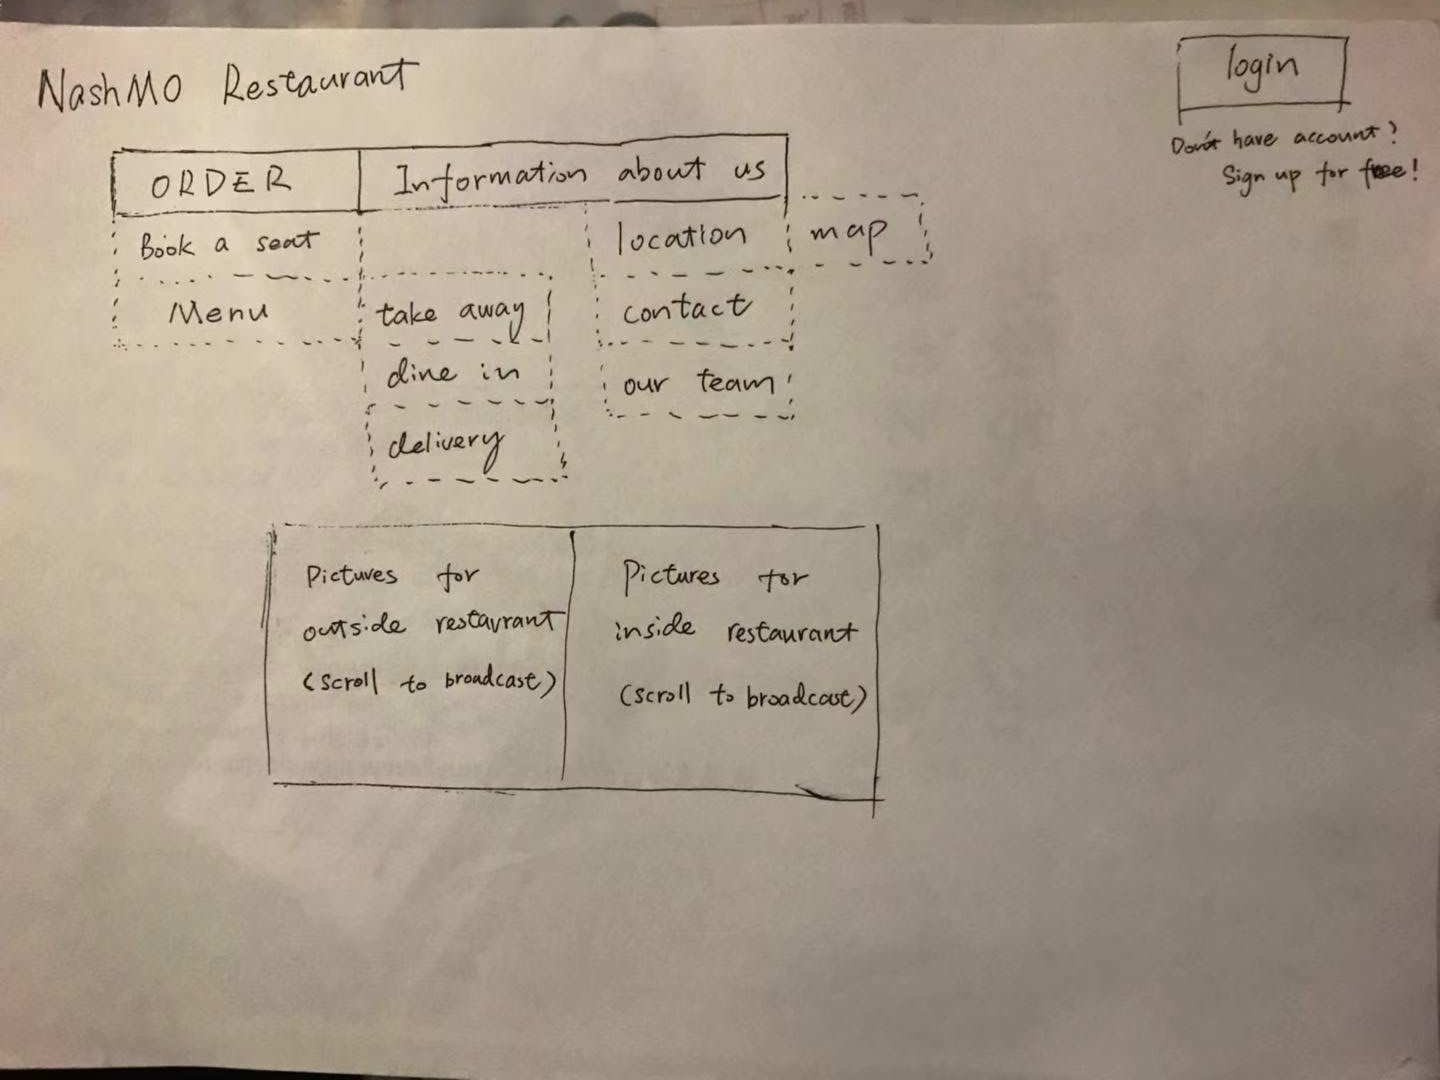 NashMO Restaurant
login
Don't have account?
Sign up for free!
ORDER
Information about us
Book a seat
location
map
Menu
take away
contact
dine in
our team
delivery
Pictures for
outside restaurant
(scroll to broadcast)
Pictures for
inside restaurant
(scroll to broadcast)